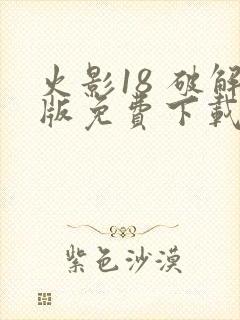 火影18 破解
版免費下載
紫色沙漠